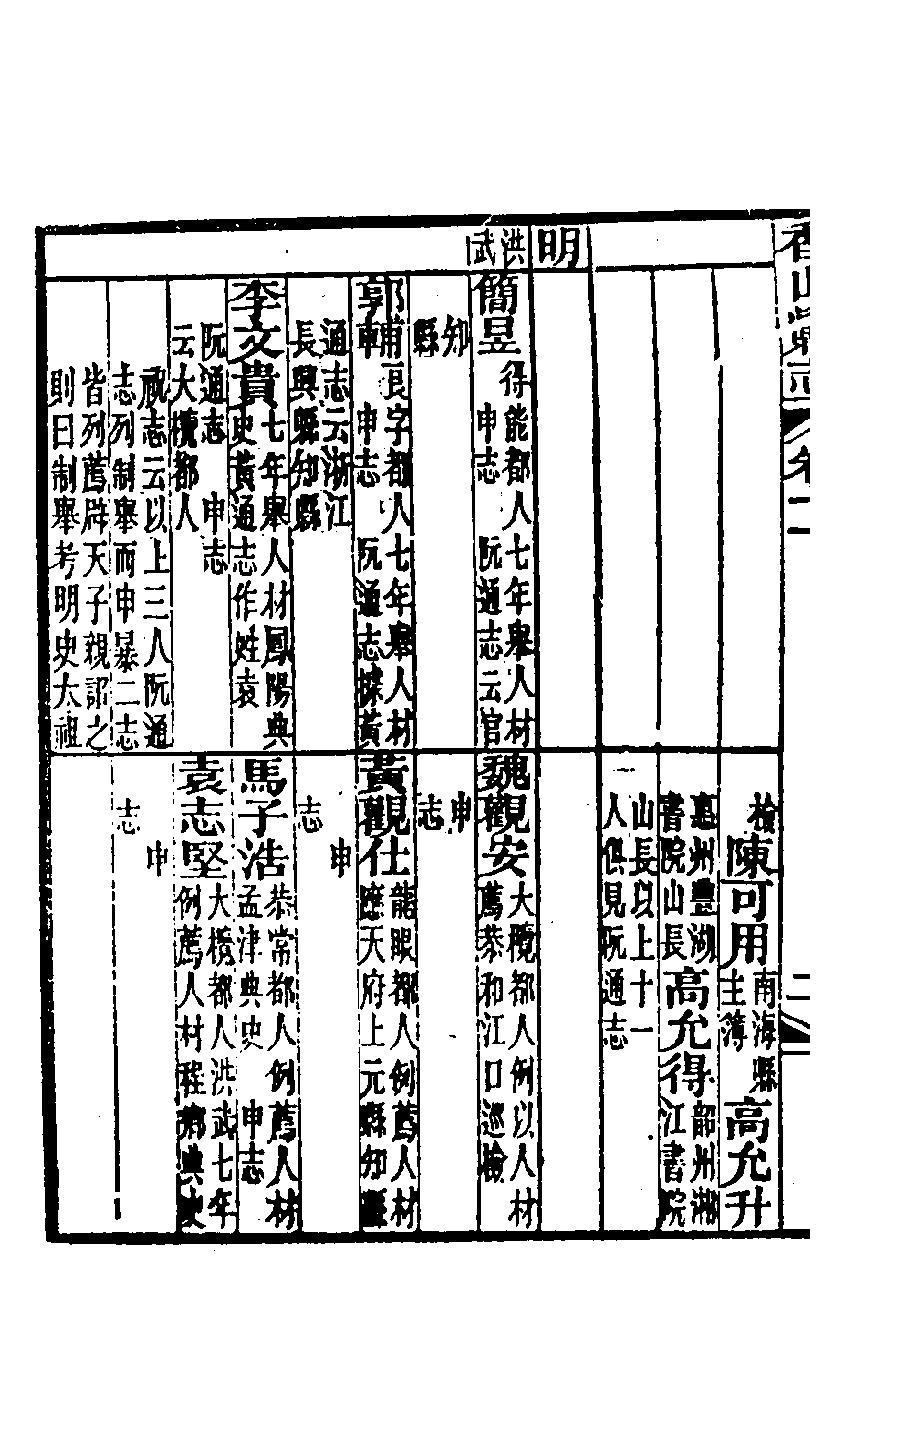 香山縣志
卷
二
明
洪武
簡昱 得能都人七年舉人材
申志 阮通志云官
知
縣
郭輔 良字都人七年舉人材
申志 阮通志據黃
通志云浙江
長興縣知縣
李文貴 七年舉人材鳳陽典
史黃通志作姓袁
阮通志 申志
云大欖都人
祝志云以上三人阮通
志列制舉而申暴二志
皆列薦辟天子親詔之
則曰制舉考明史太祖
檢
陳可用 南海縣
主簿
高允升
惠州豐湖
書院山長
高允得 韶州湘
江書院
山長以上十一
人俱見阮通志
魏觀安 大欖都人例以人材
薦恭和江口巡檢
申
志
黃觀仕 龍眼都人例薦人材
應天府上元縣知縣
申
志
馬子浩 恭常都人例薦人材
孟津典史 申志
袁志堅 大欖都人洪武七年
例薦人材程鄉典史
申
志